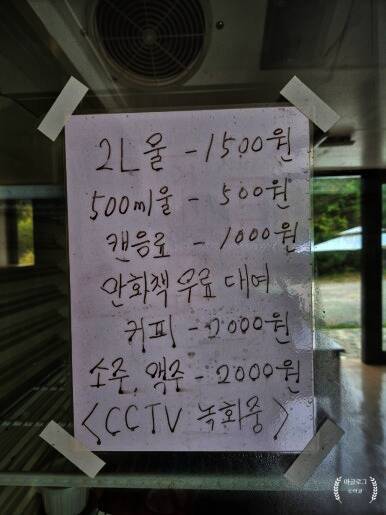 2L울 - 1500원
500ml울 - 500원
캔음료 - 1000원
안화책 무료 대여
커피 - 2000원
소주, 액주 - 2000원
<CCTV 녹화중>